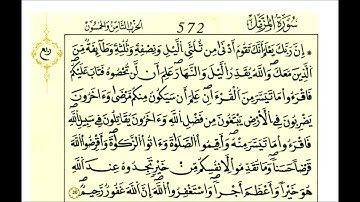 سُورَةُ المُزَّمِّل 572 الحِزْبُ الثَّامِنُ وَالخَمْسُونَ
ربع
۞ إِنَّ رَبَّكَ يَعْلَمُ أَنَّكَ تَقُومُ أَدْنَىٰ مِن ثُلُثَيِ ٱلَّيْلِ وَنِصْفِهِۦ وَثُلُثِهِۦ وَطَآئِفَةٌ مِّنَ
ٱلَّذِينَ مَعَكَ وَٱللَّهُ يُقَدِّرُ ٱلَّيْلَ وَٱلنَّهَارَ عَلِمَ أَن لَّن تُحْصُوهُ فَتَابَ عَلَيْكُمْ
فَٱقْرَءُوا۟ مَا تَيَسَّرَ مِنَ ٱلْقُرْءَانِ عَلِمَ أَن سَيَكُونُ مِنكُم مَّرْضَىٰ وَءَاخَرُونَ
يَضْرِبُونَ فِى ٱلْأَرْضِ يَبْتَغُونَ مِن فَضْلِ ٱللَّهِ وَءَاخَرُونَ يُقَٰتِلُونَ فِى سَبِيلِ ٱللَّهِ
فَٱقْرَءُوا۟ مَا تَيَسَّرَ مِنْهُ وَأَقِيمُوا۟ ٱلصَّلَوٰةَ وَءَاتُوا۟ ٱلزَّكَوٰةَ وَأَقْرِضُوا۟ ٱللَّهَ
قَرْضًا حَسَنًا وَمَا تُقَدِّمُوا۟ لِأَنفُسِكُم مِّنْ خَيْرٍ تَجِدُوهُ عِندَ ٱللَّهِ
هُوَ خَيْرًا وَأَعْظَمَ أَجْرًا وَٱسْتَغْفِرُوا۟ ٱللَّهَ إِنَّ ٱللَّهَ غَفُورٌ رَّحِيمٌ